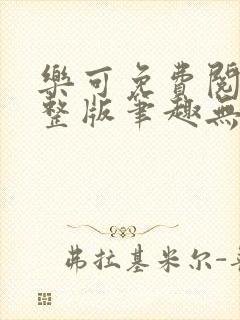 樂可免費閱
整版筆趣無
弗拉基米尔-